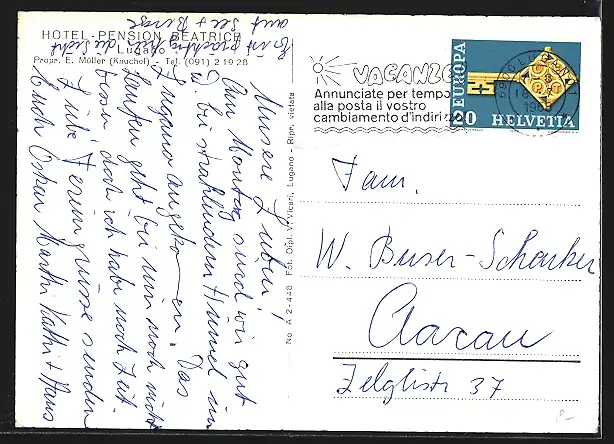 HOTEL-PENSION BEATRICE
Lugano
Propr. E. Müller (Knuchel) - Tel. (091) 2 19 28
Unsere Lieben!
Am Montag sind wir gut
bei strahlendem Himmel in
Lugano angekommen. Das
Laufen geht bei mir noch nicht
besser, doch ich habe noch Zeit.
Liebe Feriengrüsse senden
Euch Oskar Marthi Kathi + Hans
Es ist prächtig hier die Sicht
auf See + Berge
No A 2-448 Fot. Dipl. V. Vicari, Lugano - Ripr. vietata
VACANZE
Annunciate per tempo
alla posta il vostro
cambiamento d'indirizzo
EUROPA
20 HELVETIA
6500 BELLINZONA 1
Fam.
W. Buser-Schenker
Aarau
Zelglistr. 37